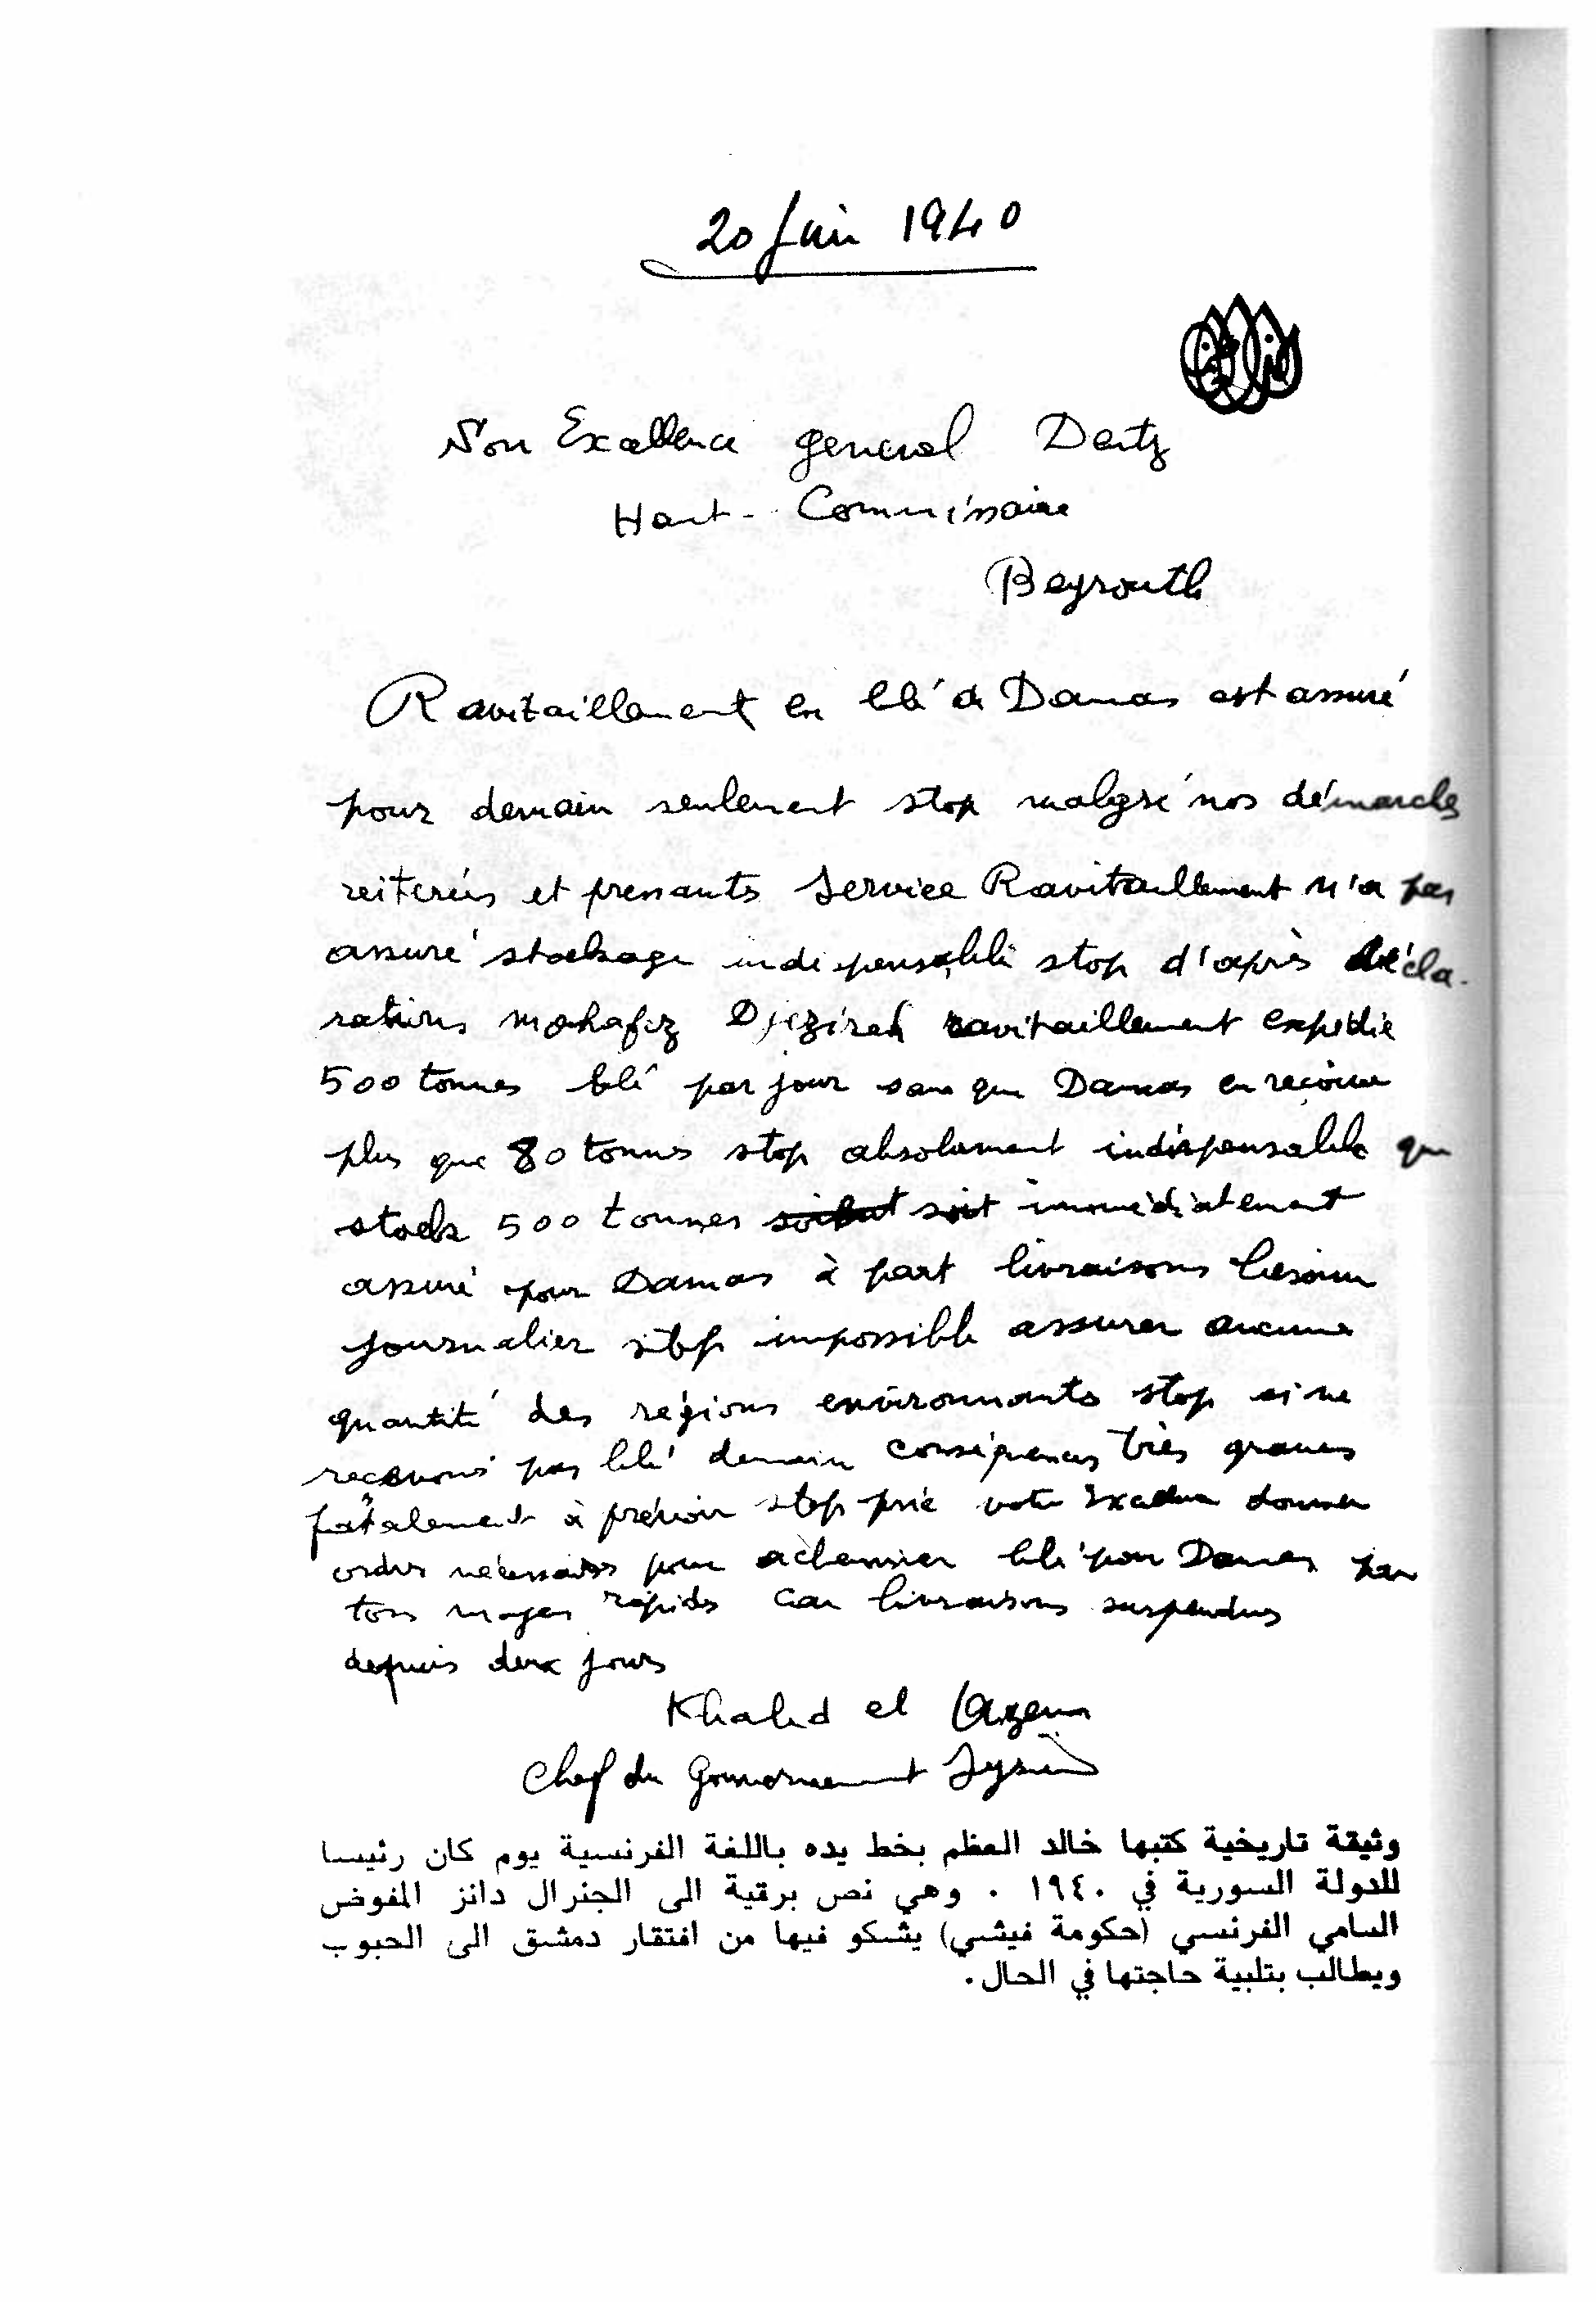 20 Juin 1940
Son Excellence general Dentz
Haut-Commissaire
Beyrouth
Ravitaillement en blé de Damas est assuré
pour demain seulement stop malgré nos démarches
reiterées et pressants Service Ravitaillement n'a pas
assuré stockage indispensable stop d'après décla-
rations mohafez Djezireh ravitaillement expédie
500 tonnes blé par jour sans que Damas en reçoive
plus que 80 tonnes stop absolument indispensable que
stock 500 tonnes soit immédiatement
assuré pour Damas à part livraisons besoin
journalier stop impossible assurer aucune
quantité des régions environnants stop si ne
recevons pas blé demain conséquences très graves
fatalement à prévoir stop prie votre Excellence donner
ordres nécessaires pour acheminer blé pour Damas par
tous moyen rapides car livraisons suspendus
depuis deux jours
Khaled el Azem
Chef du Gouvernement Syrien
وثيقة تاريخية كتبها خالد العظم بخط يده باللغة الفرنسية يوم كان رئيسا
للدولة السورية في ١٩٤٠ . وهي نص برقية الى الجنرال دانز المفوض
السامي الفرنسي (حكومة فيشي) يشكو فيها من افتقار دمشق الى الحبوب
ويطالب بتلبية حاجتها في الحال.